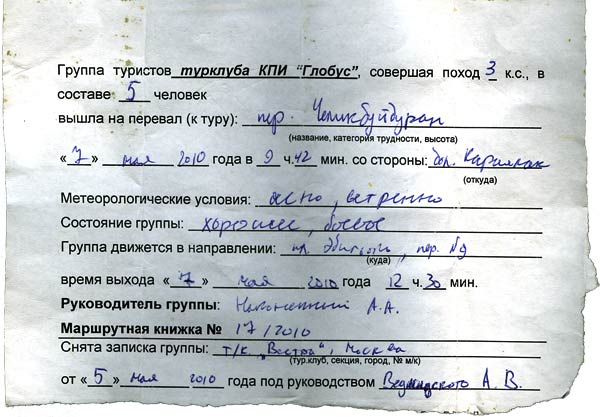 Группа туристов турклуба КПИ "Глобус", совершая поход 3 к.с., в
составе 5 человек
вышла на перевал (к туру): пер. Чемикбуйдуран
(название, категория трудности, высота)
«7» мая 2010 года в 9 ч.42 мин. со стороны: дол.
(откуда)
Метеорологические условия: ясно, ветренно
Состояние группы: хорошее, боевое
Группа движется в направлении: пер. №9
(куда)
время выхода «7» мая 2010 года 12 ч.30 мин.
Руководитель группы: А.А.
Маршрутная книжка № 17/2010
Снята записка группы: т/к „Вестра", Москва
(тур.клуб, секция, город, № м/к)
от «5» мая 2010 года под руководством Ведмидского А. В.